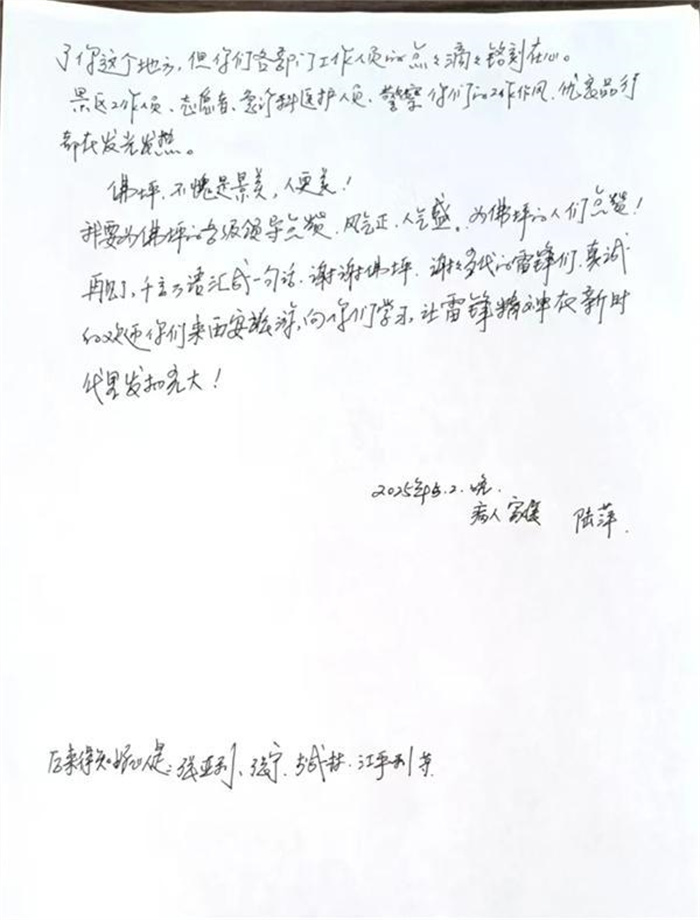 了你这个地方，但你们各部门工作人员的点点滴滴铭刻在心。
景区工作人员、志愿者、急诊科医护人员、警察你们的工作作风、优秀品行
都在发光发热。
佛坪，不愧是景美，人更美！
我要为佛坪的各级领导点赞，风气正，人气盛。为佛坪的人们点赞！
再见了，千言万语汇成一句话，谢谢佛坪，谢谢当代的雷锋们，真诚
的欢迎你们来西安旅游，向你们学习，让雷锋精神在新时
代里发扬光大！
2025年5.2.晚.
病人家属 陆萍.
后来得知好心人是：张亚利、张宁、江平利等